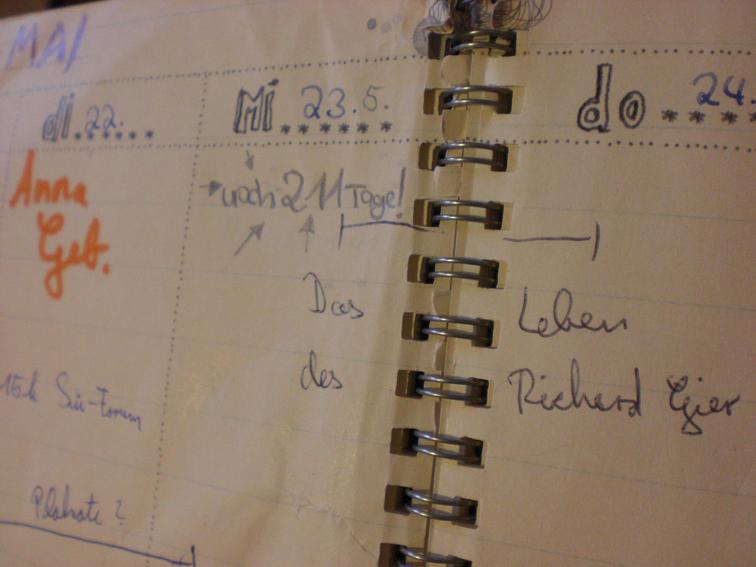 MAI
di.22.
Mi 23.5.
do 24.
Anna
Geb.
noch 211 Tage!
Das Leben
des Richard Gier
15h Sü-Forum
Plakate?